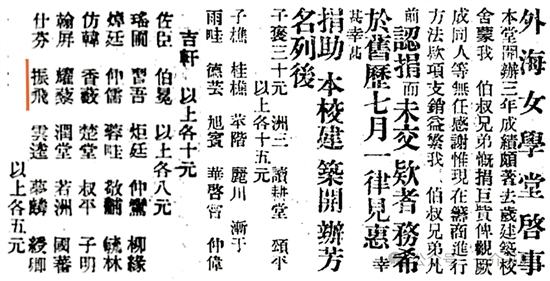 外海女學堂啓事
本堂開辦三年成績頗著去歲建築校
舍蒙我 伯叔兄弟慨捐巨貲俾觀厥
成同人等無任感謝惟現在籌商進行
方法欵項支銷益繁我 伯叔兄弟凡
前認捐而未交欵者務希
於舊歷七月一律見惠幸
甚幸此
捐助本校建築開辦芳
名列後
子褒三十元 洲三 讀耕堂 頌平
以上各十五元
子樵 桂樓 華階 麗川 漸于
雨畦 德芸 旭賓 華啓晋 仲偉
吉軒 以上各十元
佐臣 伯冕 以上各八元
瑤圃 習吾 炬廷 仲鸞 柳緣
焯廷 仲儒 蓉畦 敬黼 毓林
仿韓 香蔽 楚堂 叔平 子明
翰屏 耀藜 潤堂 若洲 國蕃
仕芬 振飛 雲逵 夢麟 綬卿
以上各五元